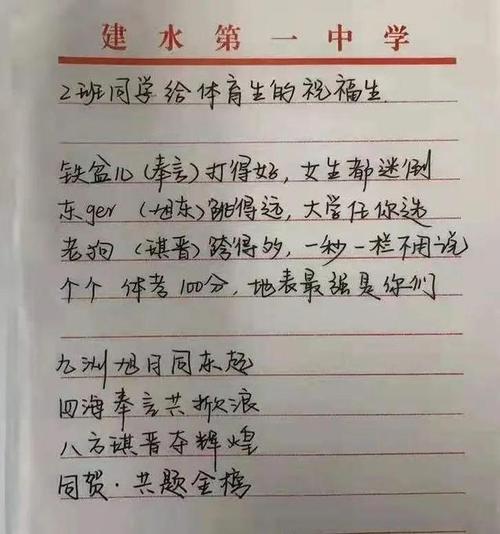 建水第一中学
2班同学给体育生的祝福生
铁盆儿(奉言)打得好,女生都迷倒
东ger (旭东)跳得远,大学任你选
老狗 (琪晋)跨得的,一秒一栏不用说
个个 体考100分,地表最强是你们
九洲旭日同东起
四海奉言共掀浪
八方琪晋夺辉煌
同贺·共题金榜